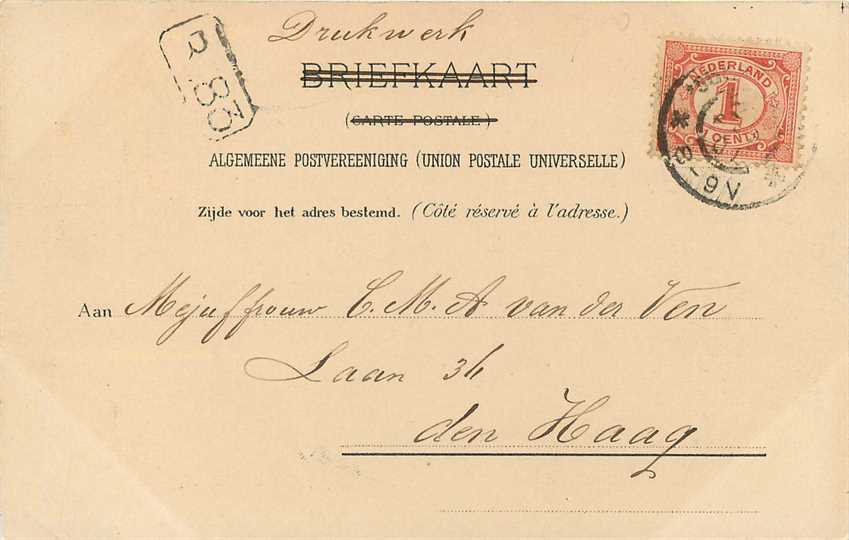 Drukwerk
BRIEFKAART
(CARTE POSTALE)
ALGEMEENE POSTVEREENIGING (UNION POSTALE UNIVERSELLE)
Zijde voor het adres bestemd. (Côté réservé à l'adresse.)
Aan Mejuffrouw C. M. A van der Ven
Laan 36
den Haag
NEDERLAND
1
CENT
8-9V
R 83